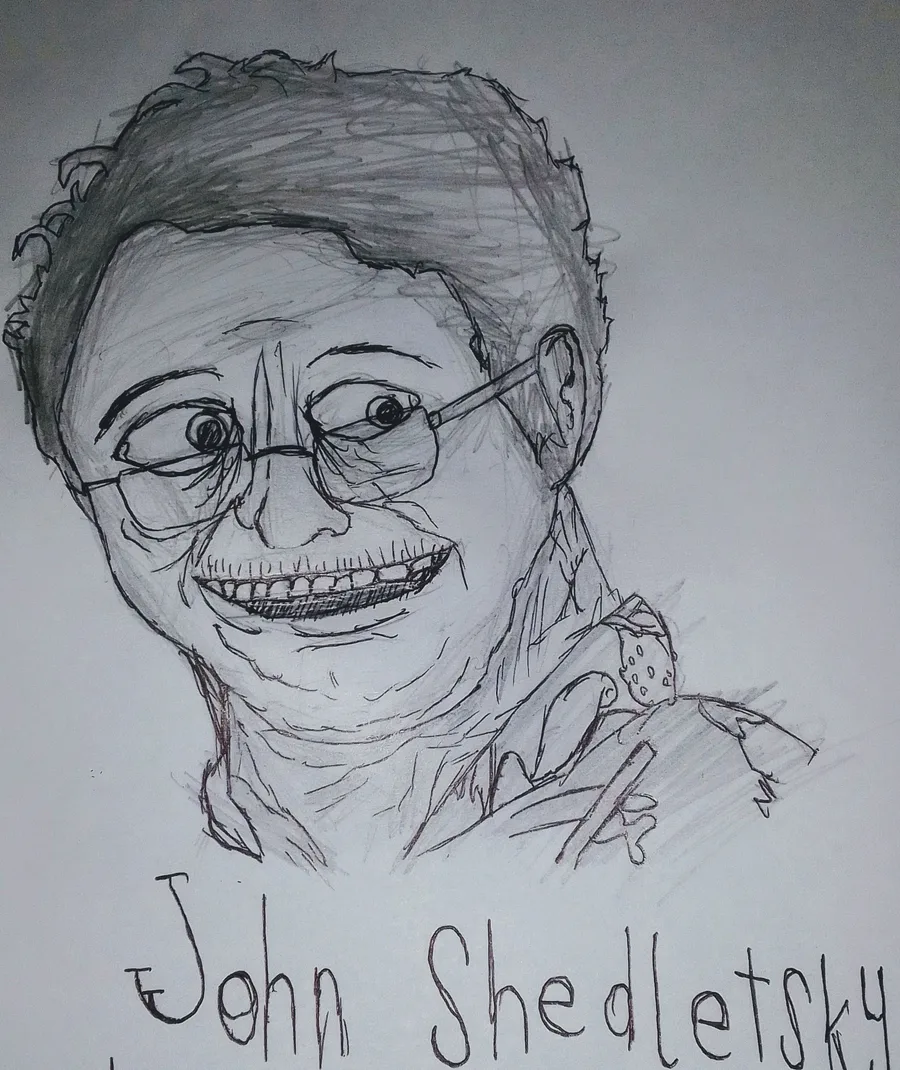 John Shedletsky